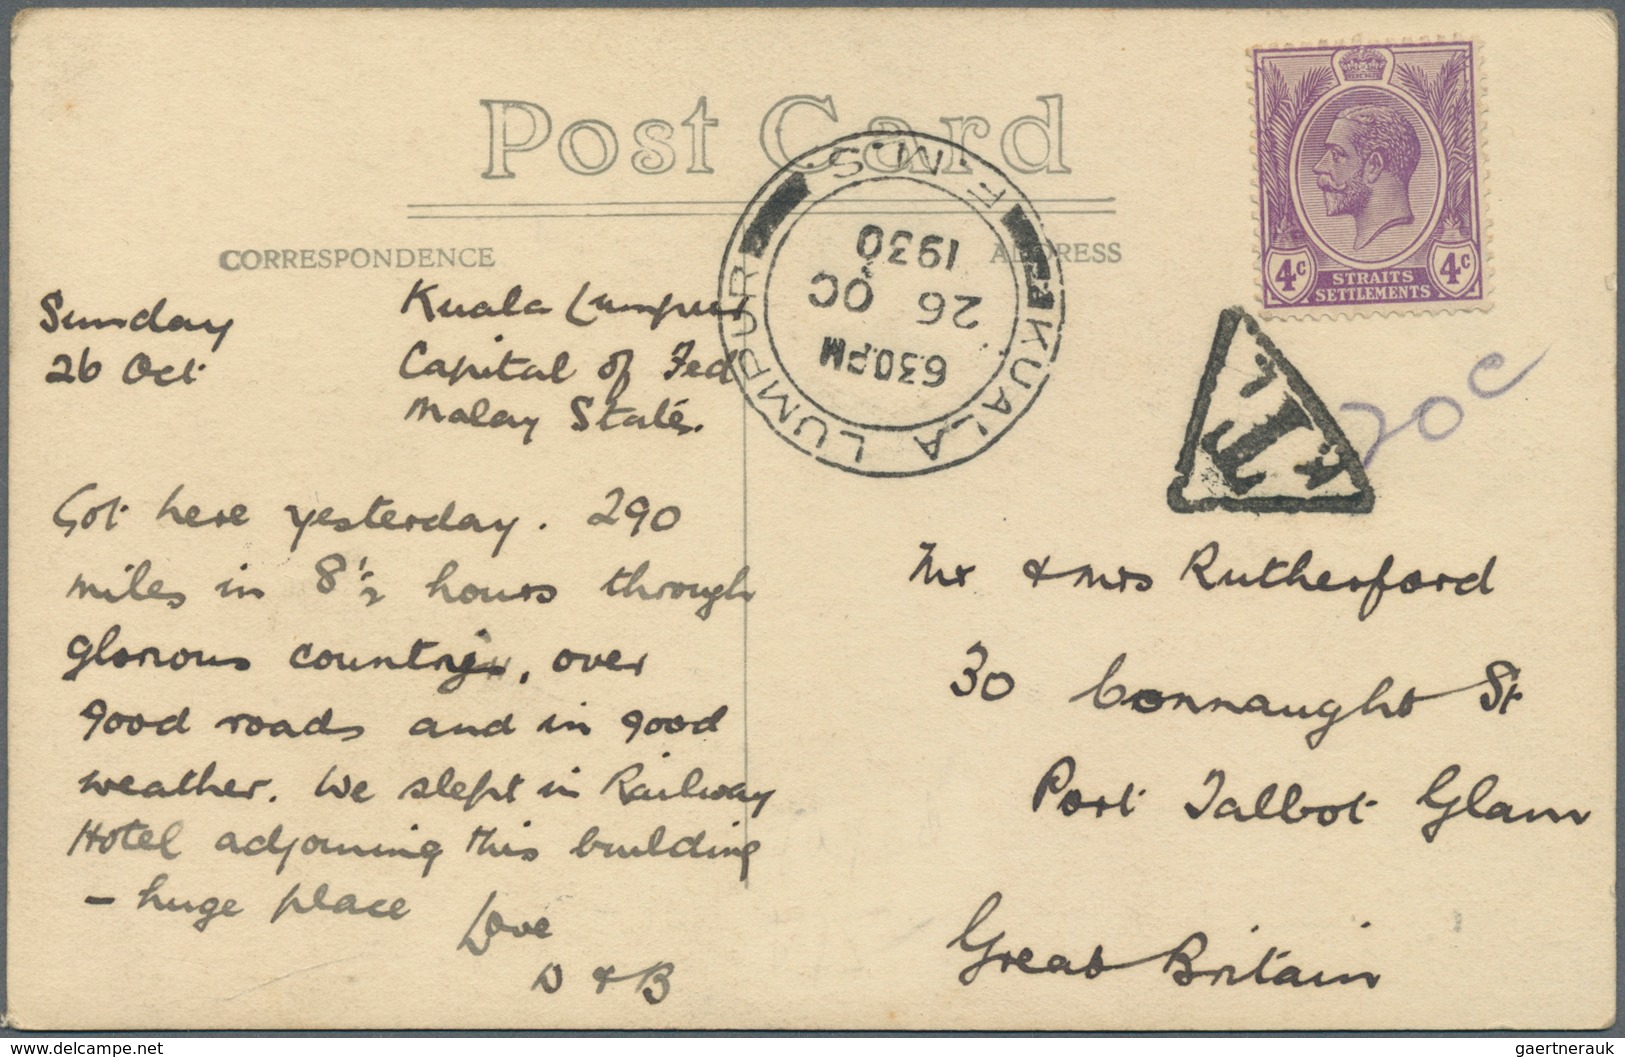 Post Card
CORRESPONDENCE
ADDRESS
KUALA LUMPUR
F.M.S
6.30PM
26 OC
1930
4c 4c
STRAITS
SETTLEMENTS
T
K L
20c
Sunday
26 Oct
Kuala Lumpur
Capital of Fed
Malay States.
Got here yesterday. 290
miles in 8½ hours through
glorious country, over
good roads and in good
weather. We slept in Railway
Hotel adjoining this building
– huge place
Love
D & B
Mr & Mrs Rutherford
30 Connaught St
Port Talbot Glam
Great Britain
www.delcampe.net
gaertnerauk